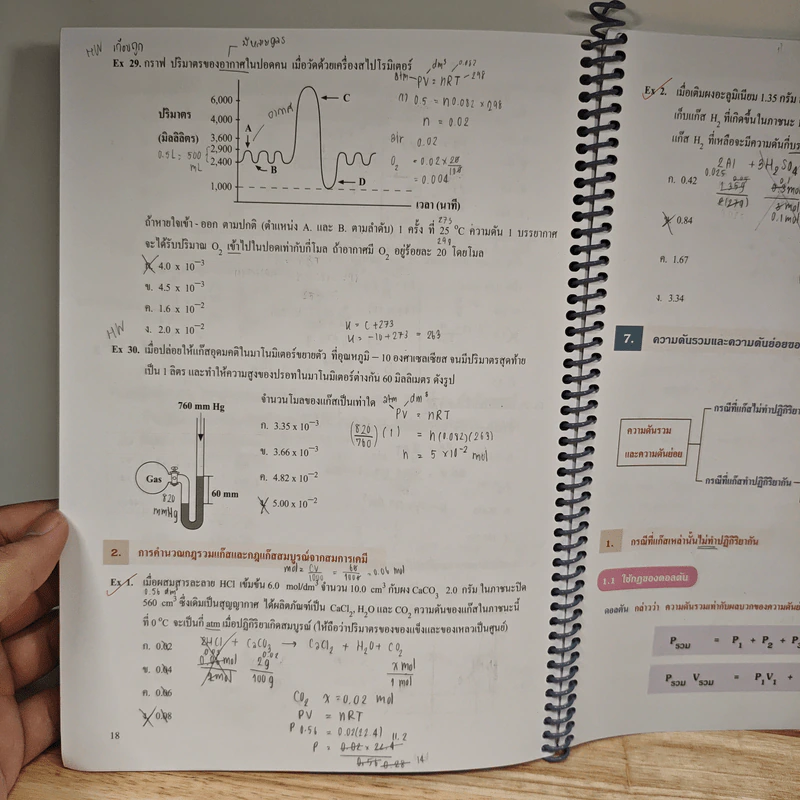 HW เกือบถูก
Ex 29. กราฟ ปริมาตรของอากาศในปอดคน เมื่อวัดด้วยเครื่องสไปโรมิเตอร์
atm dm³ 0.082
PV = nRT 298
1) 0.5 = n 0.082 x 298
n = 0.02
air 0.02
O₂ = 0.02 x 20/100
= 0.004
ปริมาตร
(มิลลิลิตร)
0.5L = 500 mL
6,000
4,000
3,600
2,900
2,400
1,000
A
อากาศ
B
C
D
เวลา (นาที)
ถ้าหายใจเข้า - ออก ตามปกติ (ตำแหน่ง A. และ B. ตามลำดับ) 1 ครั้ง ที่ 25 °C ความดัน 1 บรรยากาศ
273
298
จะได้รับปริมาณ O₂ เข้าไปในปอดเท่ากับกี่โมล ถ้าอากาศมี O₂ อยู่ร้อยละ 20 โดยโมล
ก. 4.0 x 10⁻³
ข. 4.5 x 10⁻³
ค. 1.6 x 10⁻²
ง. 2.0 x 10⁻²
K = C + 273
K = -10 + 273 = 263
HW
Ex 30. เมื่อปล่อยให้แก๊สอุดมคติในมาโนมิเตอร์ขยายตัว ที่อุณหภูมิ – 10 องศาเซลเซียส จนมีปริมาตรสุดท้าย
เป็น 1 ลิตร และทำให้ความสูงของปรอทในมาโนมิเตอร์ต่างกัน 60 มิลลิเมตร ดังรูป
760 mm Hg
Gas
820
mmHg
60 mm
จำนวนโมลของแก๊สเป็นเท่าใด
ก. 3.35 x 10⁻³
ข. 3.66 x 10⁻³
ค. 4.82 x 10⁻²
ง. 5.00 x 10⁻²
atm dm³
PV = nRT
(820/760)(1) = n(0.082)(263)
n = 5 x 10⁻² mol
2. การคำนวณกฎรวมแก๊สและกฎแก๊สสมบูรณ์จากสมการเคมี
mol = CV/1000 = = 0.06 mol
Ex 1. เมื่อผสมสารละลาย HCl เข้มข้น 6.0 mol/dm³ จำนวน 10.0 cm³ กับผง CaCO₃ 2.0 กรัม ในภาชนะปิด
0.56 dm³
560 cm³ ซึ่งเดิมเป็นสุญญากาศ ได้ผลิตภัณฑ์เป็น CaCl₂, H₂O และ CO₂ ความดันของแก๊สในภาชนะนี้
ที่ 0 °C จะเป็นกี่ atm เมื่อปฏิกิริยาเกิดสมบูรณ์ (ให้ถือว่าปริมาตรของของแข็งและของเหลวเป็นศูนย์)
ก. 0.02
ข. 0.04
ค. 0.06
ง. 0.08
2HCl + CaCO₃ → CaCl₂ + H₂O + CO₂
2g/100g
x mol/1 mol
CO₂ x = 0.02 mol
PV = nRT
P 0.56 = 0.02(22.4)
18
Ex 2. เมื่อเติมผงอะลูมิเนียม 1.35 กรัม
เก็บแก๊ส H₂ ที่เกิดขึ้นในภาชนะ
แก๊ส H₂ ที่เหลือจะมีความดันกี่
2Al + 3H₂SO₄
0.1 mol
ก. 0.42
ข. 0.84
ค. 1.67
ง. 3.34
7. ความดันรวมและความดันย่อยของ
ความดันรวม
และความดันย่อย
กรณีที่แก๊สไม่ทำปฏิกิริยา
กรณีที่แก๊สทำปฏิกิริยากัน
1. กรณีที่แก๊สเหล่านั้นไม่ทำปฏิกิริยากัน
1.1 ใช้กฎของดอลตัน
ดอลตัน กล่าวว่า ความดันรวมเท่ากับผลบวกของความดัน
Pรวม = P₁ + P₂ + P₃
Pรวม Vรวม = P₁V₁ +